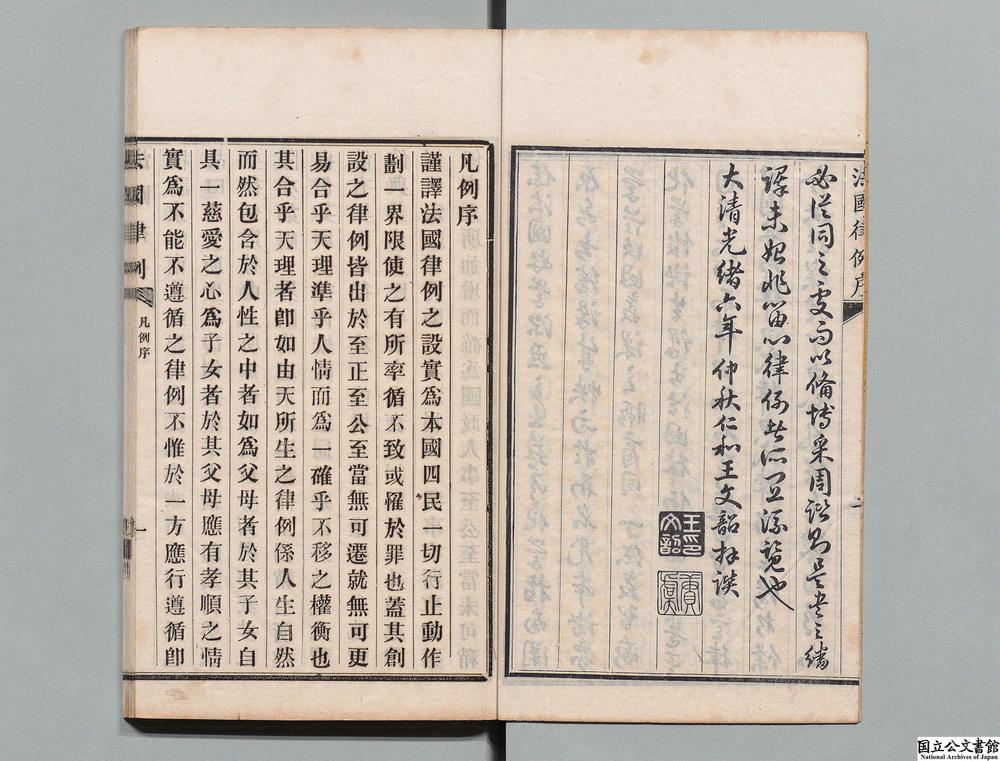 法國律例序
必從同之處而以備博采周諮則是書之繙
譯未始非留心律例者所宜流覽也
大清光緒六年仲秋仁和王文韶拜譔
王文韶印
二
凡例序
謹譯法國律例之設實爲本國四民一切行止動作
劃一界限使之有所率循不致或罹於罪也蓋其創
設之律例皆出於至正至公至當無可遷就無可更
易合乎天理準乎人情而爲一確乎不移之權衡也
其合乎天理者卽如由天所生之律例係人生自然
而然包含於人性之中者如爲父母者於其子女自
具一慈愛之心爲子女者於其父母應有孝順之情
實爲不能不遵循之律例不惟於一方應行遵循卽
法國律例
凡例序
一
国立公文書館
National Archives of Japan